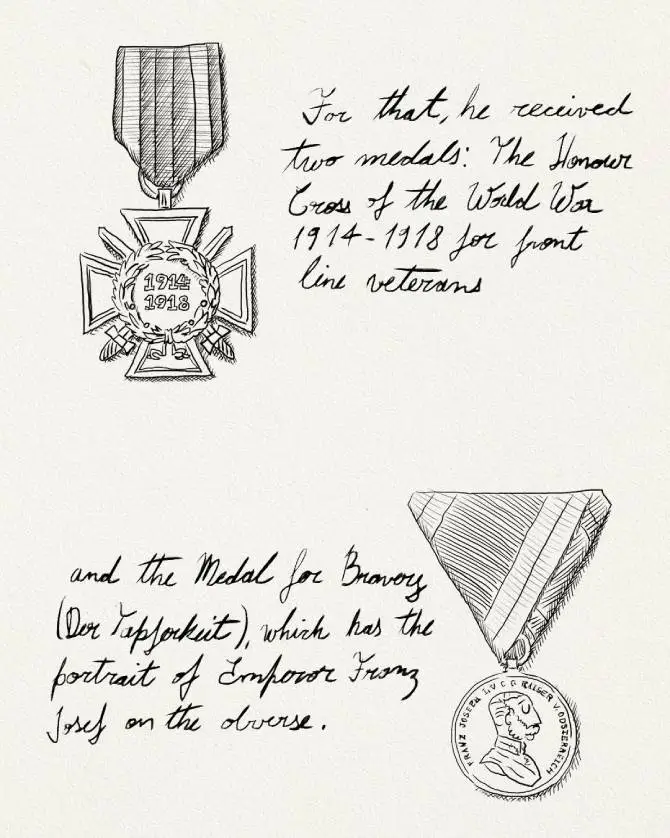 For that, he received
two medals: The Honour
Cross of the World War
1914-1918 for front
line veterans
1914
1918
and the Medal for Bravery
(Der Tapferkeit), which has the
portrait of Emperor Franz
Josef on the obverse.
FRANZ JOSEPH I. V. G. G. KAISER V. OOSZERREICH